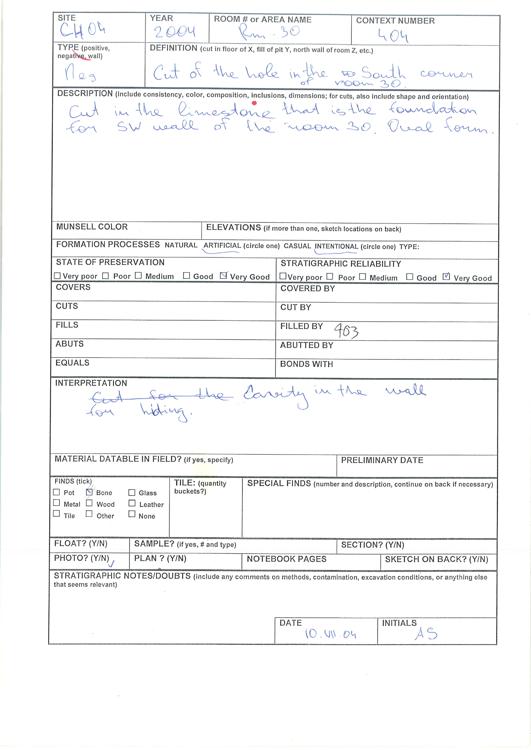 SITE
CH04
YEAR
2004
ROOM # or AREA NAME
Rm. 30
CONTEXT NUMBER
404
TYPE (positive, negative, wall)
Neg
DEFINITION (cut in floor of X, fill of pit Y, north wall of room Z, etc.)
Cut of the hole in the South corner
of room 30.
DESCRIPTION (Include consistency, color, composition, inclusions, dimensions; for cuts, also include shape and orientation)
Cut in the limestone that is the foundation
for SW wall of the room 30. Oval form.
MUNSELL COLOR
ELEVATIONS (if more than one, sketch locations on back)
FORMATION PROCESSES NATURAL ARTIFICIAL (circle one) CASUAL INTENTIONAL (circle one) TYPE:
STATE OF PRESERVATION
☐ Very poor ☐ Poor ☐ Medium ☐ Good ☑ Very Good
STRATIGRAPHIC RELIABILITY
☐ Very poor ☐ Poor ☐ Medium ☐ Good ☑ Very Good
COVERS
COVERED BY
CUTS
CUT BY
FILLS
FILLED BY 403
ABUTS
ABUTTED BY
EQUALS
BONDS WITH
INTERPRETATION
Cut for the Cavity in the wall
for hiding.
MATERIAL DATABLE IN FIELD? (if yes, specify)
PRELIMINARY DATE
FINDS (tick)
☐ Pot ☑ Bone ☐ Glass
☐ Metal ☐ Wood ☐ Leather
☐ Tile ☐ Other ☐ None
TILE: (quantity buckets?)
SPECIAL FINDS (number and description, continue on back if necessary)
FLOAT? (Y/N)
SAMPLE? (if yes, # and type)
SECTION? (Y/N)
PHOTO? (Y/N)
PLAN ? (Y/N)
NOTEBOOK PAGES
SKETCH ON BACK? (Y/N)
STRATIGRAPHIC NOTES/DOUBTS (include any comments on methods, contamination, excavation conditions, or anything else
that seems relevant)
DATE
10.VII 04
INITIALS
AS